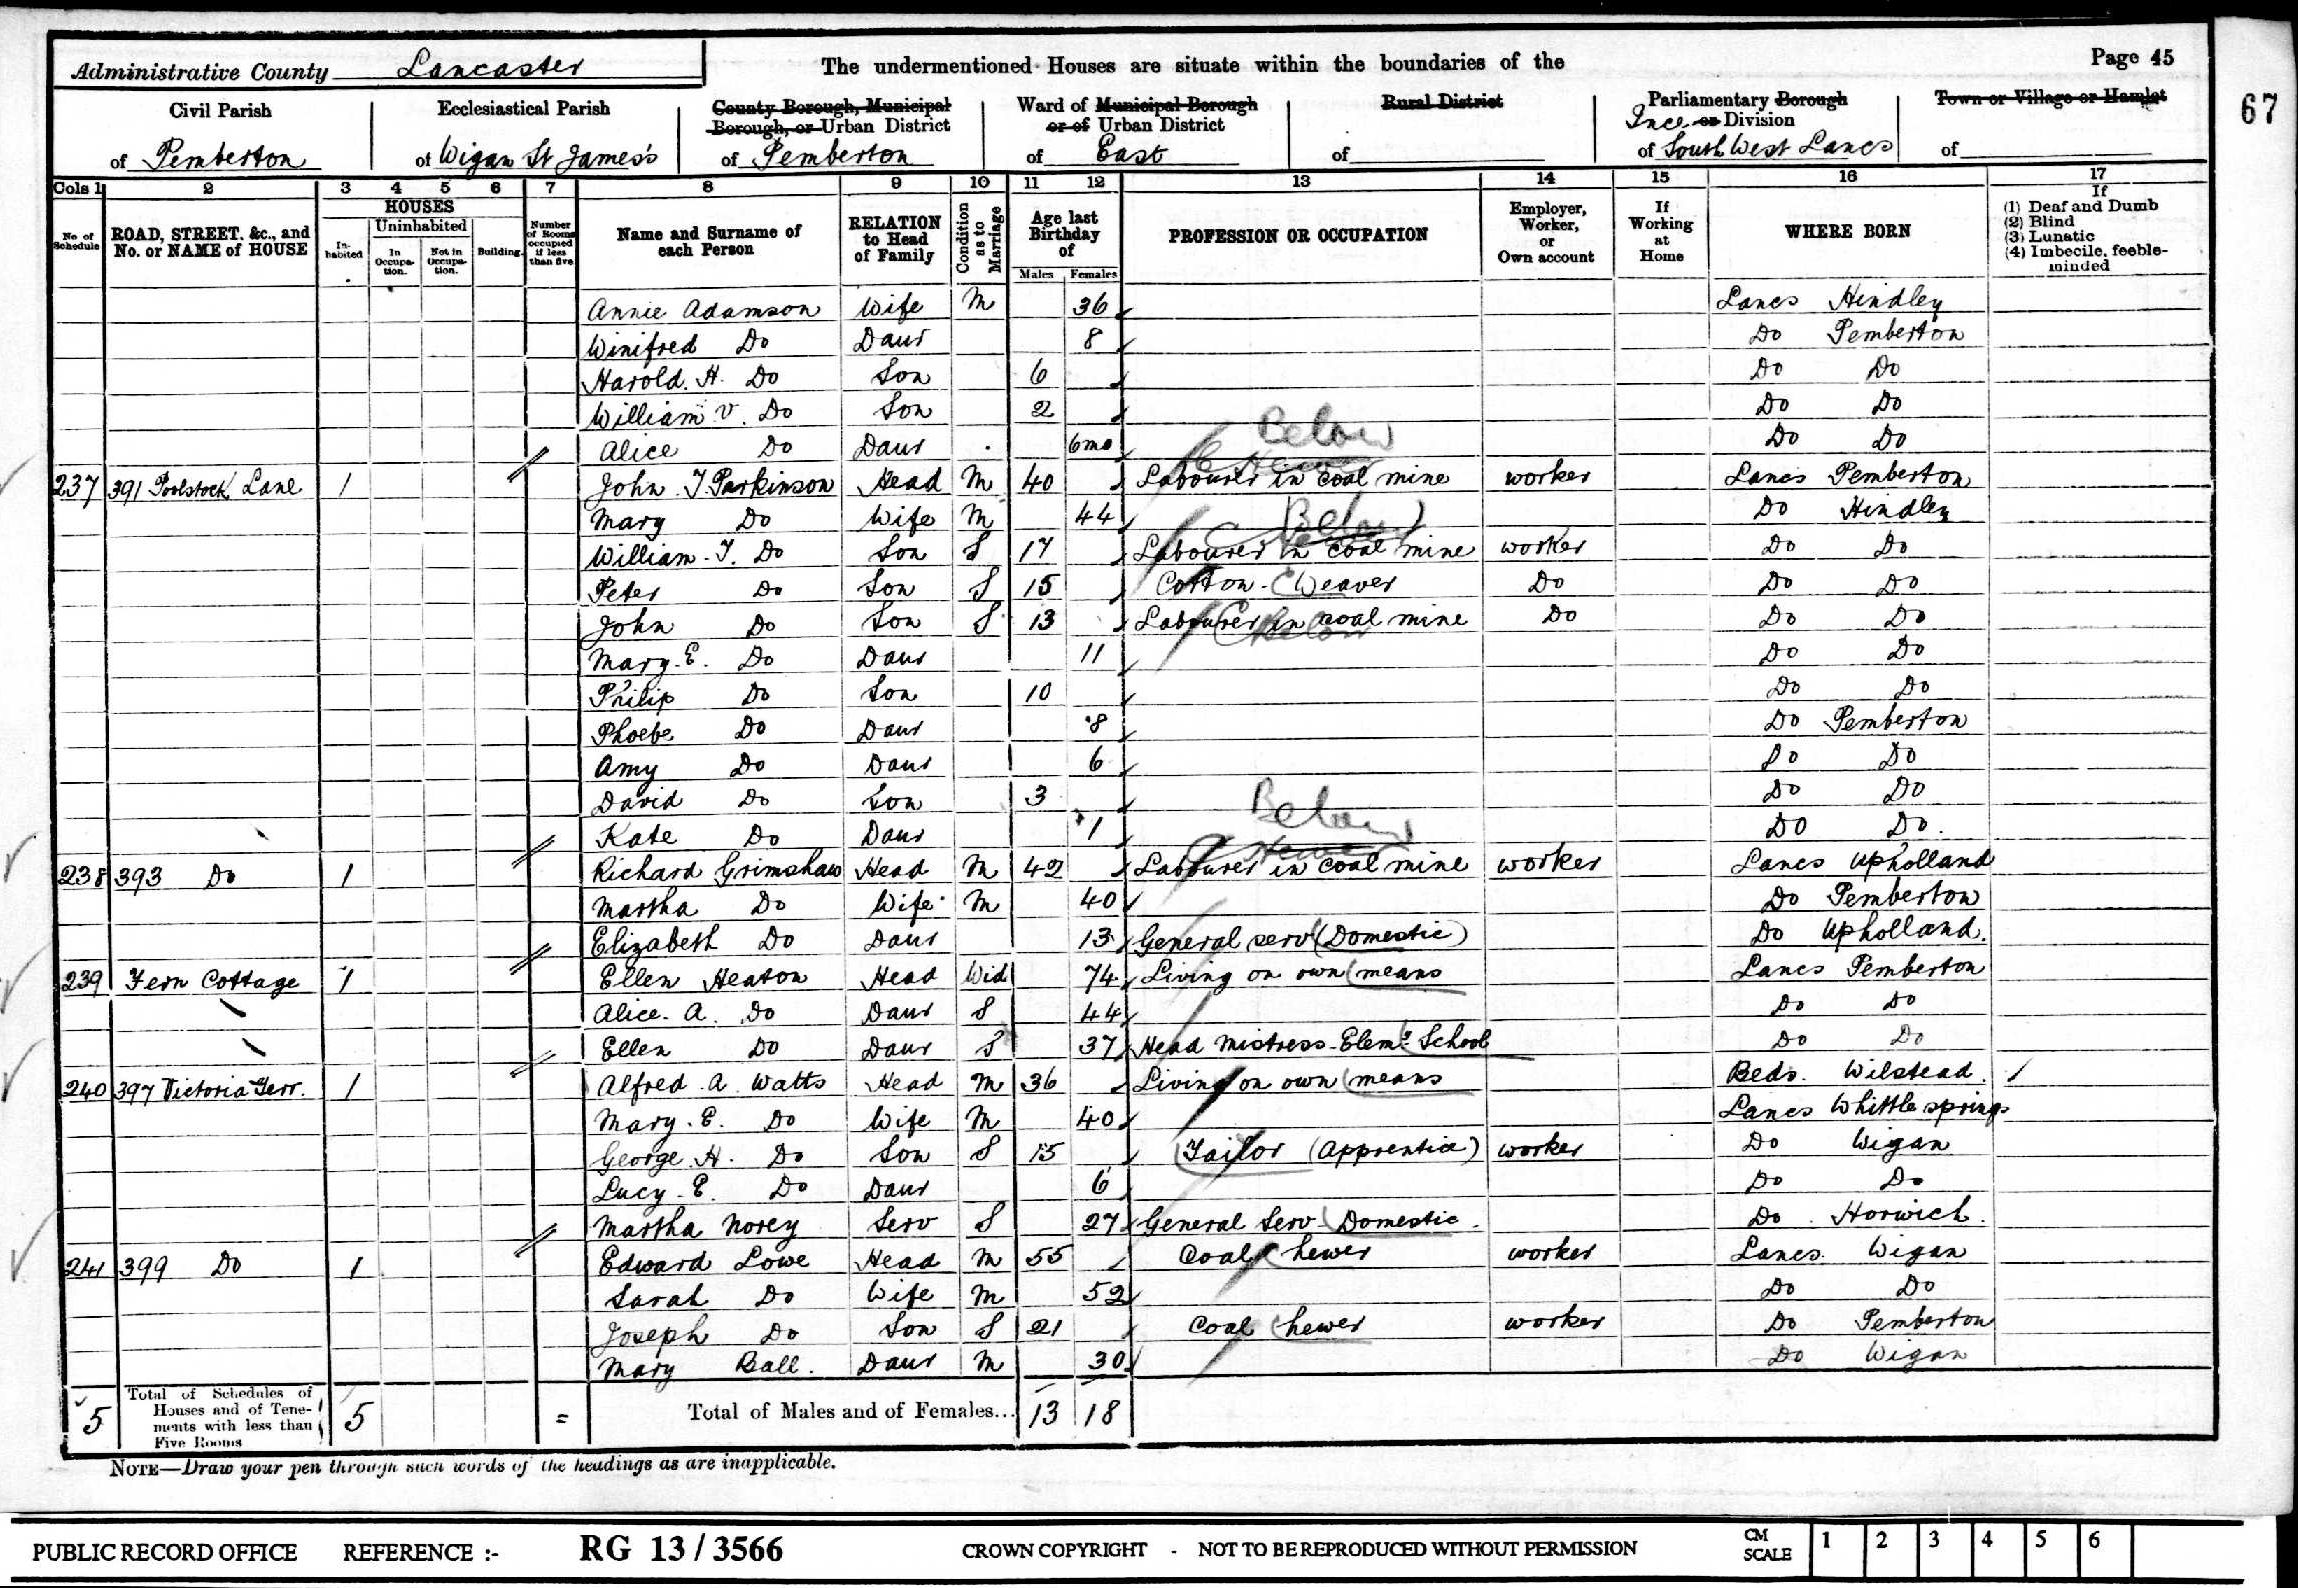 Administrative County Lancaster The undermentioned Houses are situate within the boundaries of the Page 45
67
Civil Parish of Pemberton
Ecclesiastical Parish of Wigan St James's
County Borough, Municipal Borough, or Urban District of Pemberton
Ward of Municipal Borough or of Urban District of East
Rural District of
Parliamentary Borough or Division of Ince South West Lancs
Town or Village or Hamlet of
Cols 1 2 3 4 5 6 7 8 9 10 11 12 13 14 15 16 17
No. of Schedule
ROAD, STREET, &c., and No. or NAME of HOUSE
HOUSES
In-habited
Uninhabited
In Occupa-tion.
Not in Occupa-tion.
Building.
Number of Rooms occupied if less than five
Name and Surname of each Person
RELATION to Head of Family
Condition as to Marriage
Age last Birthday of
Males Females
PROFESSION OR OCCUPATION
Employer, Worker, or Own account
If Working at Home
WHERE BORN
If
(1) Deaf and Dumb
(2) Blind
(3) Lunatic
(4) Imbecile, feeble-minded
Annie Adamson Wife M 36 Lancs Hindley
Winifred Do Daur 8 Do Pemberton
Harold. H. Do Son 6 Do Do
William V. Do Son 2 Do Do
Below
Alice Do Daur 6mo Do Do
Hewer
237 391 Poolstock Lane 1 John T Parkinson Head M 40 Labourer in coal mine worker Lancs Pemberton
Mary Do Wife M 44 Do Hindley
Below
William. T. Do Son S 17 Labourer in coal mine worker Do Do
Peter Do Son S 15 Cotton Weaver Do Do Do
John Do Son S 13 Labourer in coal mine Do Do Do
Below
Mary. E. Do Daur 11 Do Do
Philip Do Son 10 Do Do
Phoebe Do Daur 8 Do Pemberton
Amy Do Daur 6 Do Do
David Do Son 3 Do Do
Below
Kate Do Daur 1 Do Do.
Hewer
238 393 Do 1 Richard Grimshaw Head M 42 Labourer in coal mine worker Lancs Upholland
Martha Do Wife M 40 Do Pemberton
Elizabeth Do Daur 13 General serv (Domestic) Do Upholland.
239 Fern Cottage 1 Ellen Heaton Head Wid 74 Living on own means Lancs Pemberton
Alice. A. Do Daur S 44 Do Do
Ellen Do Daur S 37 Head Mistress Elemy School Do Do
240 397 Victoria Terr. 1 Alfred. A. Watts Head M 36 Living on own means Beds. Wilstead.
Mary. E. Do Wife M 40 Lancs Whittle springs
George. H. Do Son S 15 Tailor (Apprentice) worker Do Wigan
Lucy. E. Do Daur 6 Do Do
Martha Norey Serv S 27 General Serv Domestic. Do Horwich.
241 399 Do 1 Edward Lowe Head M 55 Coal hewer worker Lancs. Wigan
Sarah Do Wife M 52 Do Do
Joseph Do Son S 21 Coal hewer worker Do Pemberton
Mary Ball. Daur M 30 Do Wigan
5 Total of Schedules of Houses and of Tene-ments with less than Five Rooms 5 = Total of Males and of Females... 13 18
NOTE—Draw your pen through such words of the headings as are inapplicable.
PUBLIC RECORD OFFICE REFERENCE :- RG 13/3566 CROWN COPYRIGHT - NOT TO BE REPRODUCED WITHOUT PERMISSION CM SCALE 1 2 3 4 5 6